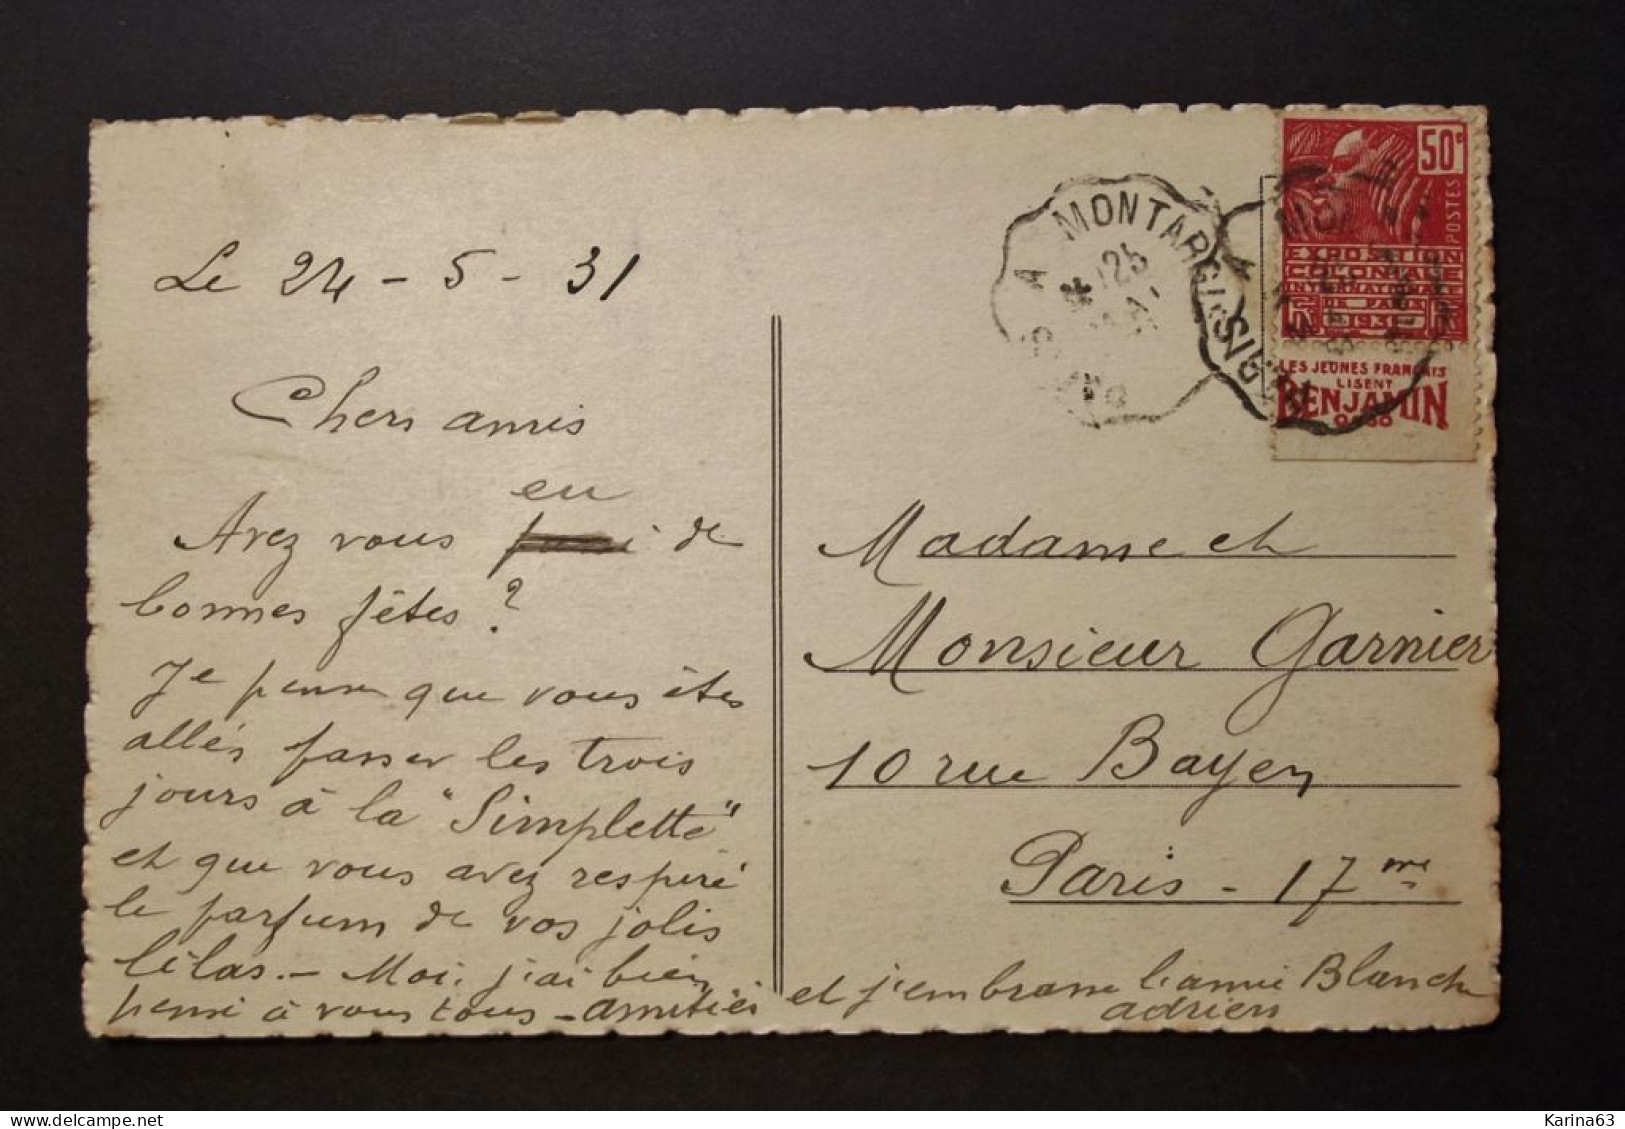 Le 24 - 5 - 31
Chers amis
eu
Avez vous de
bonnes fêtes ?
Je pense que vous êtes
allés passer les trois
jours à la "Simplette"
et que vous avez respiré
le parfum de vos jolis
lilas. - Moi, j'ai bien
pensé à vous tous - amitiés
et j'embrasse l'amie Blanche
adrien
MONTARGIS A PARIS
25
50c
POSTES
EXPOSITION
COLONIALE
INTERNATIONALE
DE PARIS
1931
LES JEUNES FRANCAIS
LISENT
BENJAMIN
0.50
Madame et
Monsieur Garnier
10 rue Bayen
Paris - 17me
Karina63